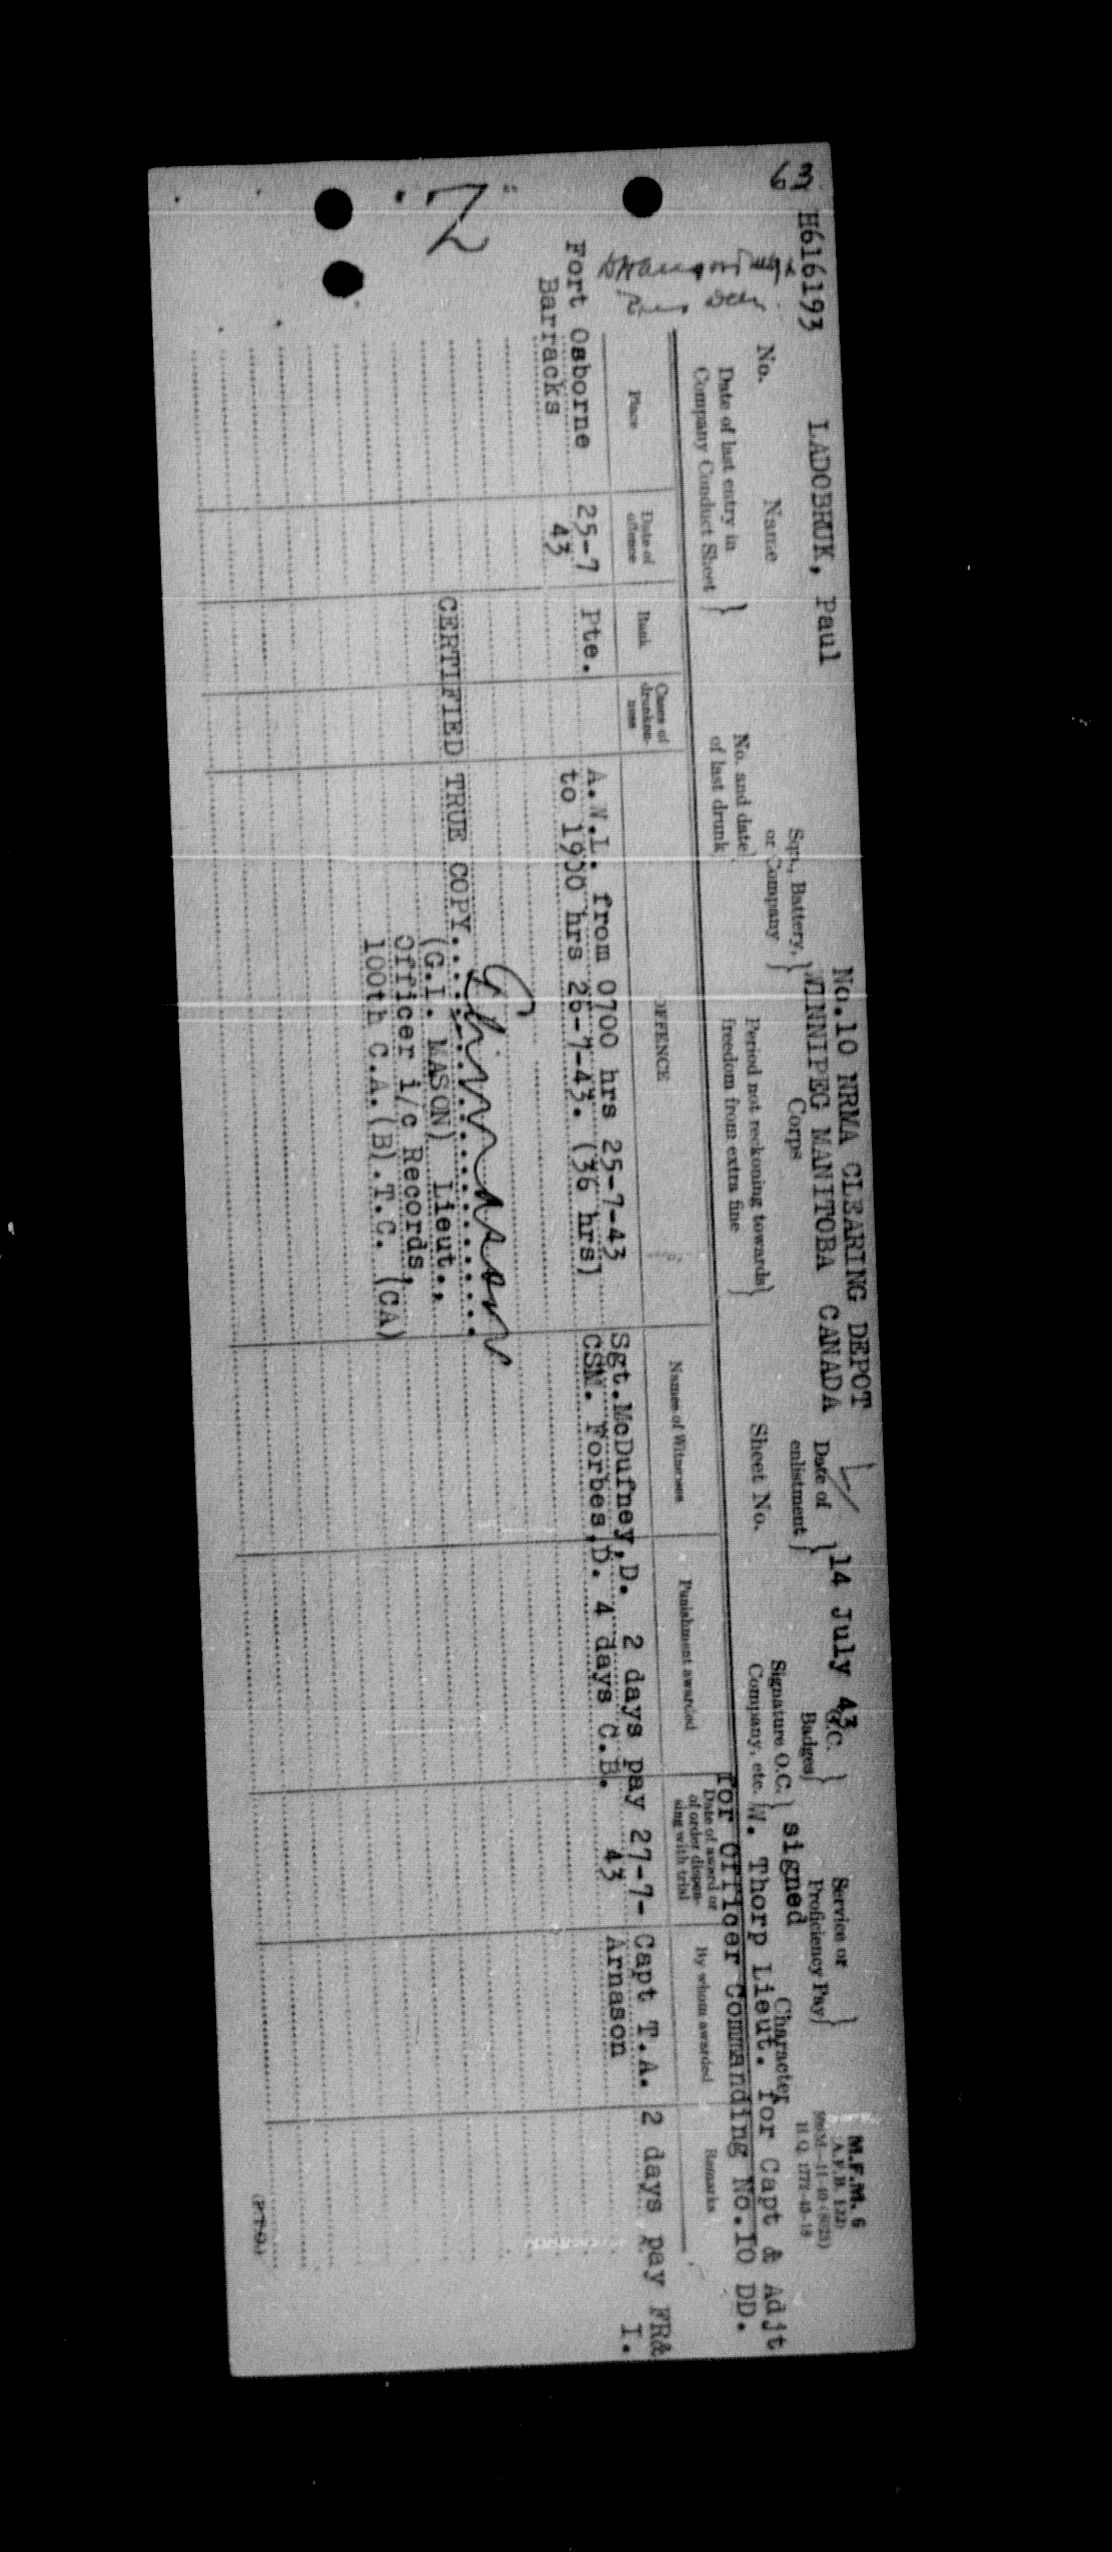 63
H616193 LADOBRUK, Paul
No. Name
No.10 NRMA CLEARING DEPOT
WINNIPEG MANITOBA CANADA
Sqn., Battery, or Company } Corps
Date of enlistment } 14 July 43
G.C. Badges }
Service or Proficiency Pay }
M.F.M. 6
A.F.B. 122
H.Q. 1772-45-18
Date of last entry in Company Conduct Sheet }
No. and date of last drunk }
Period not reckoning towards freedom from extra fine }
Sheet No.
Signature O.C. Company, etc. } signed
W. Thorp Lieut. for Capt & Adjt
for Officer Commanding No.10 DD.
Character
Place
Date of offence
Rank
Cases of drunkenness
OFFENCE
Names of Witnesses
Punishment awarded
Date of award or of order dispensing with trial
By whom awarded
Remarks
Fort Osborne 25-7 Pte. A.W.L. from 0700 hrs 25-7-43 Sgt.McDufney,D. 2 days pay 27-7- Capt T.A. 2 days pay FR&
Barracks 43 to 1900 hrs 26-7-43. (36 hrs) CSM. Forbes,D. 4 days C.B. 43 Arnason I.
"Z"
CERTIFIED TRUE COPY.
(G.I. MASON) Lieut.,
Officer i/c Records,
100th C.A.(B).T.C. (CA)
(P.T.O.)